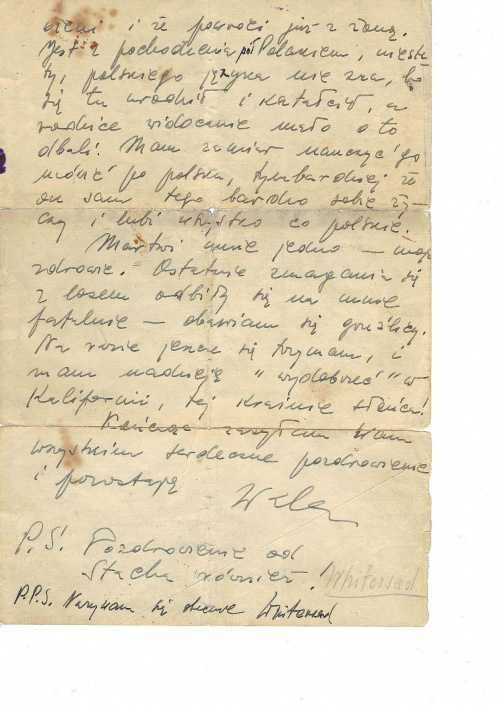 i że powróci już z żoną.
Jest z pochodzenia pół Polakiem, nieste-
ty, polskiego języka nie zna, bo
się tu urodził i kształcił, a
rodzice widocznie mało o to
dbali. Mam zamiar nauczyć go
mówić po polsku, tymbardziej że
on sam tego bardzo sobie ży-
czy i lubi wszystko co polskie.
Martwi mnie jedno — moje
zdrowie. Ostatnie zmagania się
z losem odbiły się na mnie
fatalnie — obawiam się gruźlicy.
Na razie jeszcze się trzymam, i
mam nadzieję "wydobrzeć" w
Kalifornii, tej krainie słońca!
Kończąc zasyłam Wam
wszystkim serdeczne pozdrowienie
i pozostaję
P.S. Pozdrowienie od
Stacha również!
Whitehead
P.P.S. Nazywam się obecnie Whitehead